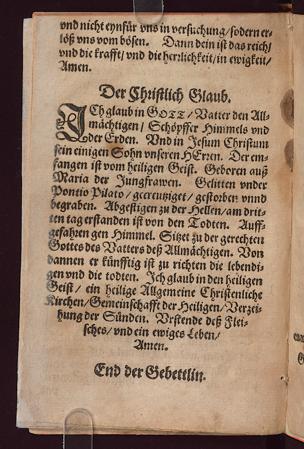 vnd nicht eynfür vns in versuchung / sodern er-
löß vns vom bösen. Dann dein ist das reich /
vnd die krafft / vnd die herrlichkeit / in ewigkeit /
Amen.
Der Christlich Glaub.
ICh glaub in GOTT / Vatter den All-
mächtigen / Schöpffer Himmels vnd
der Erden. Vnd in Jesum Christum
sein einigen Sohn vnseren HErren. Der em-
fangen ist vom heiligen Geist. Geboren auß
Maria der Jungfrawen. Gelitten vnder
Pontio Pilato / gecreutziget / gestorben vnnd
begraben. Abgestigen zu der Hellen / am drit-
ten tag erstanden ist von den Todten. Auff-
gefahren gen Himmel. Sitzet zu der gerechten
Gottes des Vatters deß Allmächtigen. Von
dannen er künfftig ist zu richten die lebendi-
gen vnd die todten. Ich glaub in den heiligen
Geist / ein heilige Allgemeine Christenliche
Kirchen / Gemeinschafft der Heiligen / Verzei-
hung der Sünden. Vrstende deß Flei-
sches / vnd ein ewiges Leben /
Amen.
End der Gebettlin.